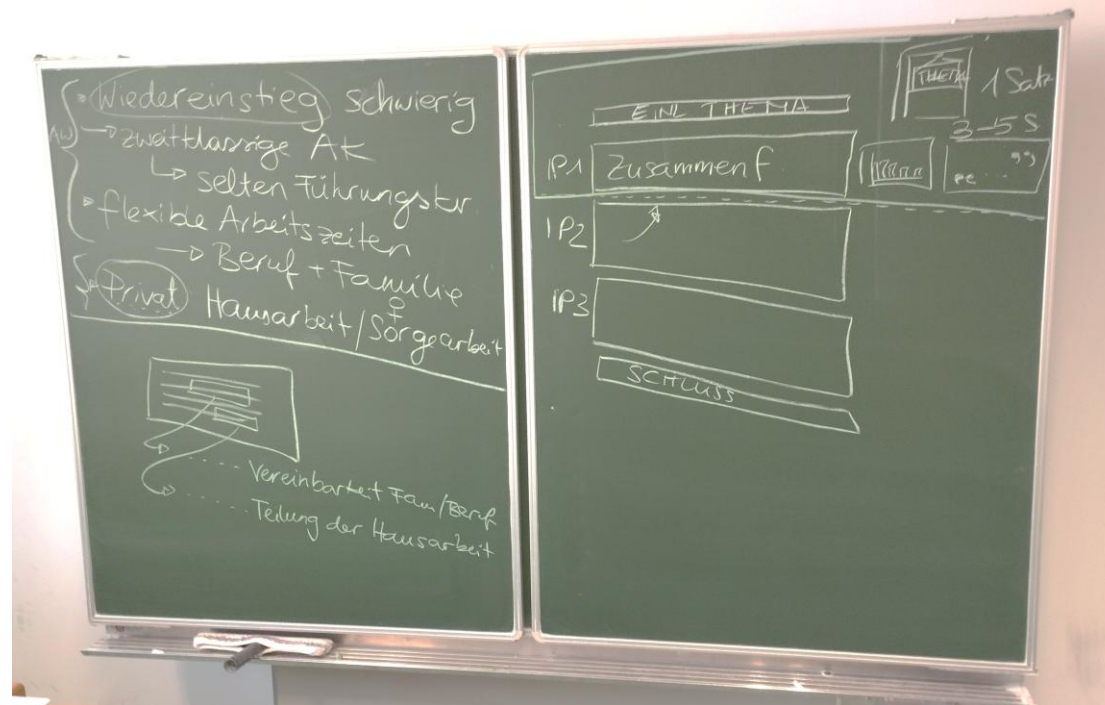 Wiedereinstieg schwierig
→ zweitklassige AK
↳ selten Führungskr.
flexible Arbeitszeiten
→ Beruf + Familie
Privat Hausarbeit / Sorgearbeit
Vereinbarkeit Fam/Beruf
Teilung der Hausarbeit
THEMA 1 Satz
EINL THEMA
3-5 S
IP1 Zusammenf
IP2
IP3
SCHLUSS